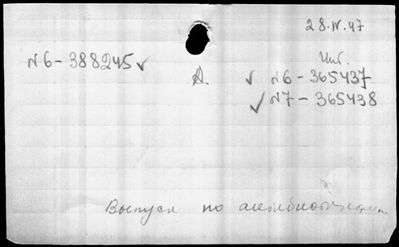 28.IV.47
N6-388245 ✓
Инг.
А. ✓ N6-365437
✓ N7-365438
Выпуск по